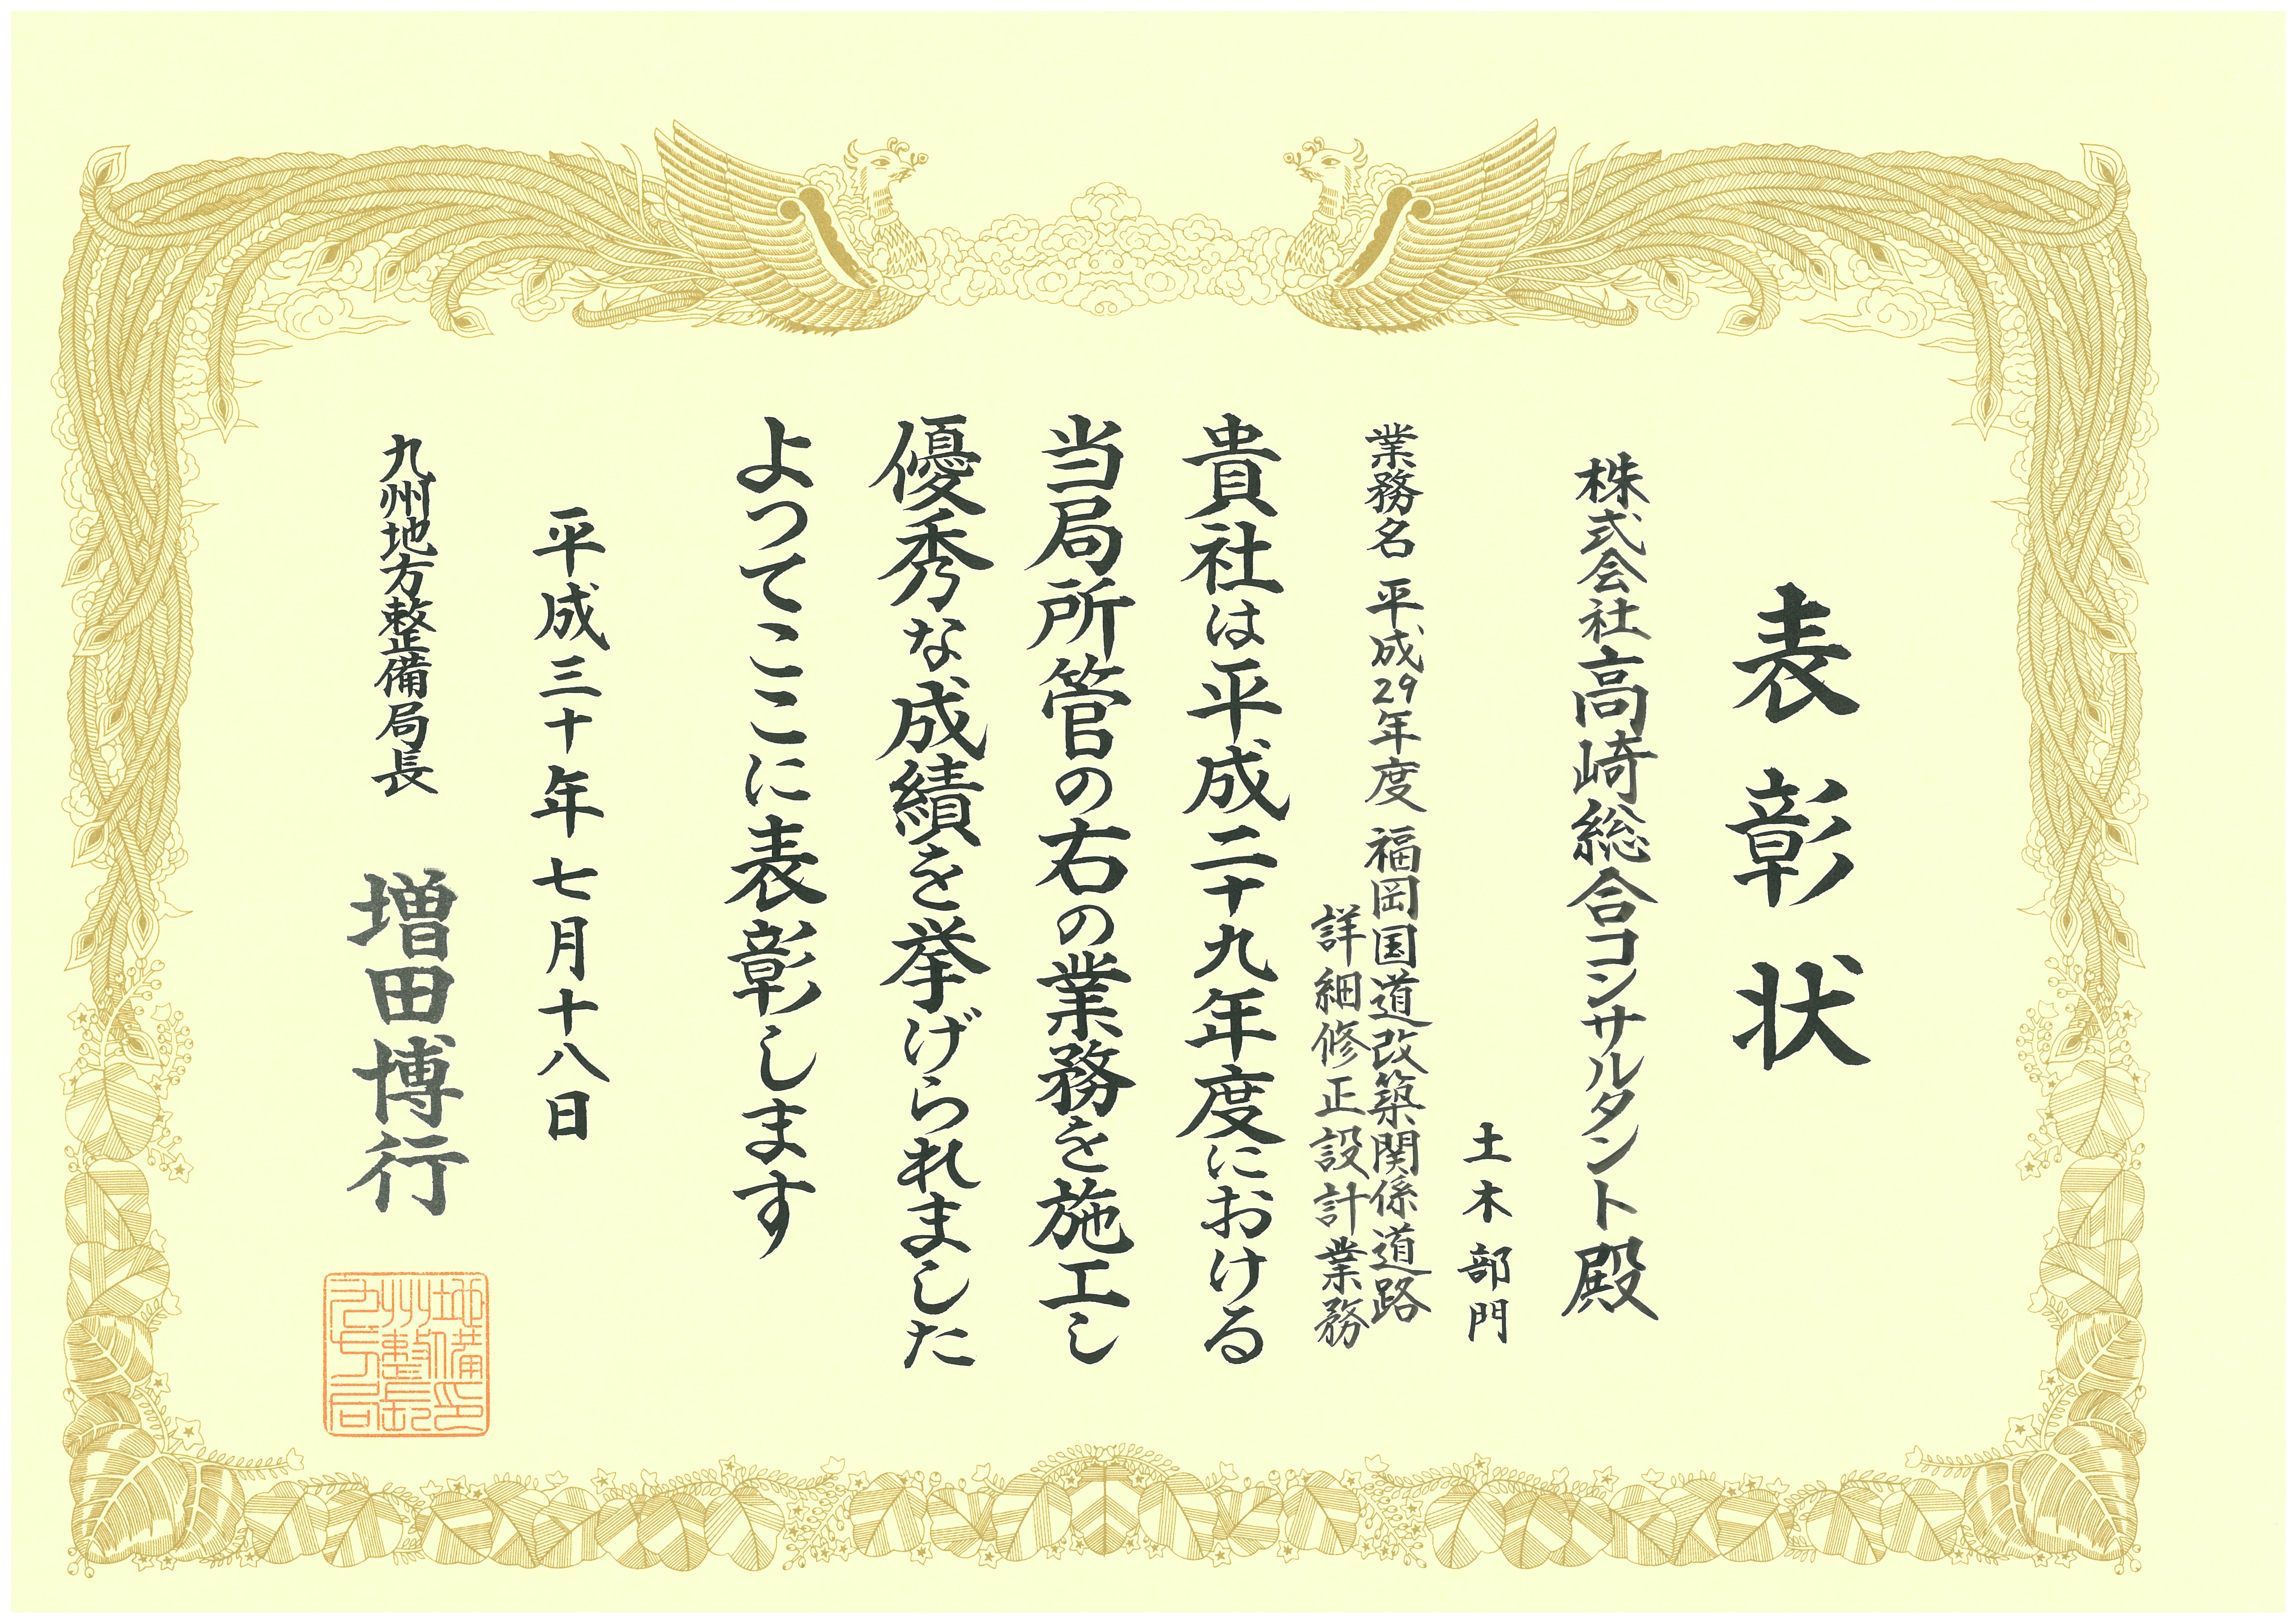 表彰状
株式会社高崎総合コンサルタント殿
土木部門
業務名 平成29年度 福岡国道改築関係道路
詳細修正設計業務
貴社は平成二十九年度における
当局所管の右の業務を施工し
優秀な成績を挙げられました
よってここに表彰します
平成三十年七月十八日
九州地方整備局長 増田博行